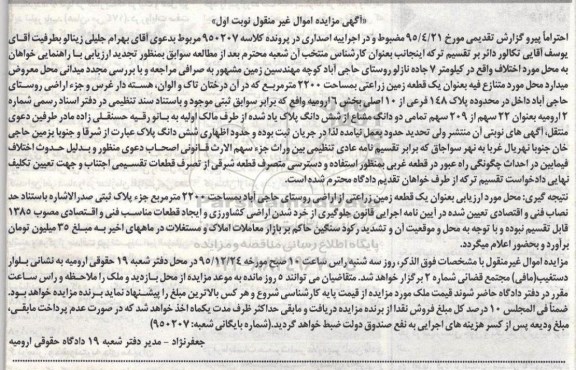 «آگهی مزایده اموال غیر منقول نوبت اول»
احتراماً پیرو گزارش تقدیمی مورخ ۹۵/۴/۲۱ مضبوط و در اجراییه اصداری در پرونده کلاسه ۹۵۰۲۰۷ مربوط بدعوی آقای بهرام جلیلی زینالو بطرفیت آقای
یوسف آقایی تکالور دائر بر تقسیم ترکه اینجانب بعنوان کارشناس منتخب آن شعبه محترم بعد از مطالعه سوابق بمنظور تجدید ارزیابی با راهنمایی خواهان
به محل مورد اختلاف واقع در کیلومتر ۷ جاده نازلو روستای حاجی آباد کوچه مهندسین زمین مشهور به صرافی مراجعه و با بررسی مجدد میدانی محل معروض
میدارد محل مورد متنازع فیه بعنوان یک قطعه زمین زراعتی بمساحت ۲۲۰۰ مترمربع که در آن درختان تاک و الوان، هسته دار غرس و جزء اراضی روستای
حاجی آباد داخل در محدوده پلاک ۱۴۸ فرعی از ۱۰ اصلی بخش ۱۰ ارومیه واقع که برابر سوابق ثبتی موجود و باستناد سند تنظیمی در دفتر اسناد رسمی شماره
۲ ارومیه بعنوان ۲۲ سهم از ۲۰۹ سهم تمامی دو دانگ مشاع از شش دانگ پلاک یاد شده از طرف مالک اولیه به بانو رقیه حسنقلی زاده مادر طرفین دعوی
منتقل، آگهی های نوبتی آن منتشر ولی تحدید حدود بعمل نیامده لذا در جریان ثبت بوده و حدود اظهاری شش دانگ پلاک عبارت از شرقا و جنوبا بزمین حاجی
خان جنوبا نهریال غربا به نهر سواجاق که برابر تقسیم نامه عادی تنظیمی بین وراث جزء سهم الارث قانونی اصحاب دعوی منظور و بدلیل حدوث اختلاف
فیمابین در احداث چگونگی راه عبور در قطعه غربی بمنظور استفاده و دسترسی متصرف قطعه شرقی از تصرف قطعات تقسیمی اجتناب و جهت تعیین تکلیف
نهایی دادخواست تقسیم ترکه از طرف خواهان تقدیم دادگاه محترم شده است.
نتیجه گیری: محل مورد ارزیابی بعنوان یک قطعه زمین زراعتی از اراضی روستای حاجی آباد بمساحت ۲۲۰۰ مترمربع جزء پلاک ثبتی صدرالاشاره باستناد حد
نصاب فنی و اقتصادی تعیین شده در آیین نامه اجرایی قانون جلوگیری از خرد شدن اراضی کشاورزی و ایجاد قطعات مناسب فنی و اقتصادی مصوب ۱۳۸۵
قابل تقسیم نبوده و با توجه به محل و موقعیت آن و تشدید رکود سنگین حاکم بر بازار معاملات املاک و مستغلات در ماههای اخیر به مبلغ ۳۵ میلیون تومان
برآورد و بحضور اعلام میگردد.
مزایده اموال غیرمنقول با مشخصات فوق الذکر، روز سه شنبه راس ساعت ۱۰ صبح مورخه ۹۵/۱۲/۲۴ در محل دفتر شعبه ۱۹ حقوقی ارومیه به نشانی بلوار
دستغیب(مافی) مجتمع قضائی شماره ۲ برگزار خواهد شد. متقاضیان می توانند ۵ روز مانده به موعد مزایده از محل بازدید و ملک را ملاحظه و راس ساعت
مقرر در دفتر دادگاه حاضر شوند قیمت ملک مورد مزایده از قیمت پایه کارشناسی شروع و هر کس بالاترین مبلغ را پیشنهاد نماید برنده مزایده خواهد بود.
ضمنا فی المجلس ۱۰ درصد کل مبلغ فروش نقدا از برنده مزایده دریافت و مابقی حداکثر ظرف مدت یکماه اخذ خواهد شد که در صورت عدم پرداخت مابقی،
مبلغ ودیعه پس از کسر هزینه های اجرایی به نفع صندوق دولت ضبط خواهد گردید.(شماره بایگانی شعبه: ۹۵۰۲۰۷)
جعفرنژاد - مدیر دفتر شعبه ۱۹ دادگاه حقوقی ارومیه